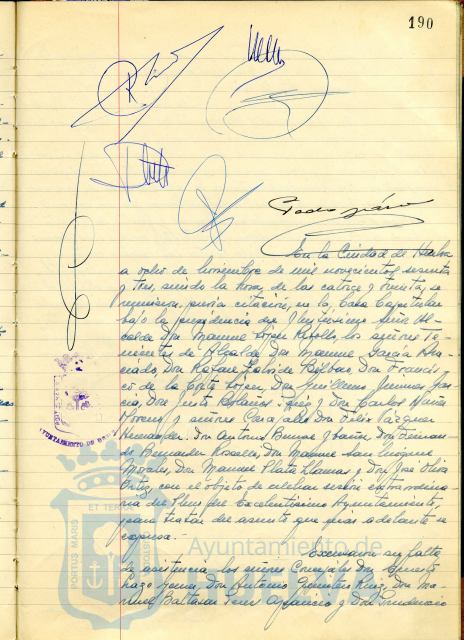 190
Pedro
En la Ciudad de Huelva
a ocho de noviembre de mil novecientos sesenta
y tres, siendo la hora de las catorce y treinta, se
reunieron, previa citación, en la Casa Capitular
bajo la presidencia del Ilustrísimo Señor Al-
calde Don Manuel López Rebollo, los señores Te-
nientes de Alcalde, Don Manuel García
Don Rafael Don Francis-
co de la Corte López, Don Guillermo Jiménez Gar-
cía, Don Justo Bolaños y Don Carlos Núñez
Moreno y señores Concejales Don Félix Vázquez
Hernández, Don Antonio Don Fernan-
do Hernández Rosales, Don Manuel
Morales, Don Manuel Plata Llamas y Don José Oliva
Ortiz, con el objeto de celebrar sesión extraordina-
ria del Pleno del Excelentísimo Ayuntamiento,
para tratar del asunto que más adelante se
expresa.-
Excusaron su falta
de asistencia, los señores Concejales Don Ernesto
Lazo Don Antonio Ruiz, Don Ma-
nuel Baltasar Aparicio y Don Prudencio
AYUNTAMIENTO DE
PORTUS MARIS
ET TERRAE
Ayuntamiento de
HUELVA